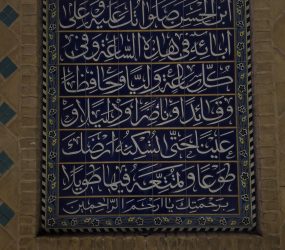 بن الحسن صلواتك عليه وعلى
آبائه في هذه الساعة وفي
كل ساعة وليا وحافظا
وقائدا وناصرا ودليلا و
عينا حتى تسكنه أرضك
طوعا وتمتعه فيها طويلا
برحمتك يا ارحم الراحمين